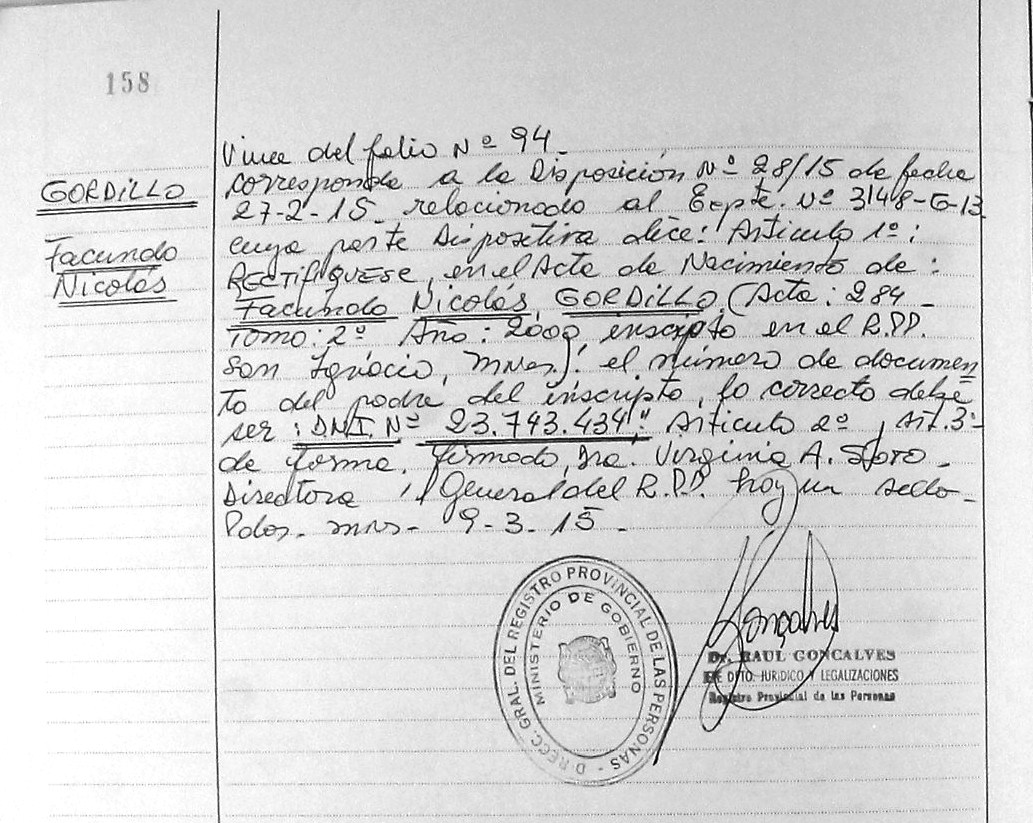 158
GORDILLO
Facundo
Nicolás
Viene del folio Nº 94_
corresponde a la Disposición Nº 28/15 de fecha
27-2-15_ relacionado al Expte. Nº 3148-G-13
cuya parte Dispositiva dice: Articulo 1º:
RECTIFIQUESE, en el Acta de Nacimiento de:
Facundo Nicolás GORDILLO (Acta: 284_
Tomo: 2º Año: 2000 inscripto en el R.PP.
San Ignacio, Mnes.): el número de documen
to del padre del inscripto, lo correcto debe
ser: "DNI. Nº 23.743.434". Articulo 2º, Art. 3º
de forma. firmado, Dra. Virginia A.
Directora // General del R.P.P. hay un sello_
Pdas. mns- 9-3-15_
DIRECC. GRAL. DEL REGISTRO PROVINCIAL DE LAS PERSONAS -
MINISTERIO DE GOBIERNO
Gonçalves
Dr. RAUL GONCALVES
JEFE DPTO. JURIDICO Y LEGALIZACIONES
Registro Provincial de las Personas